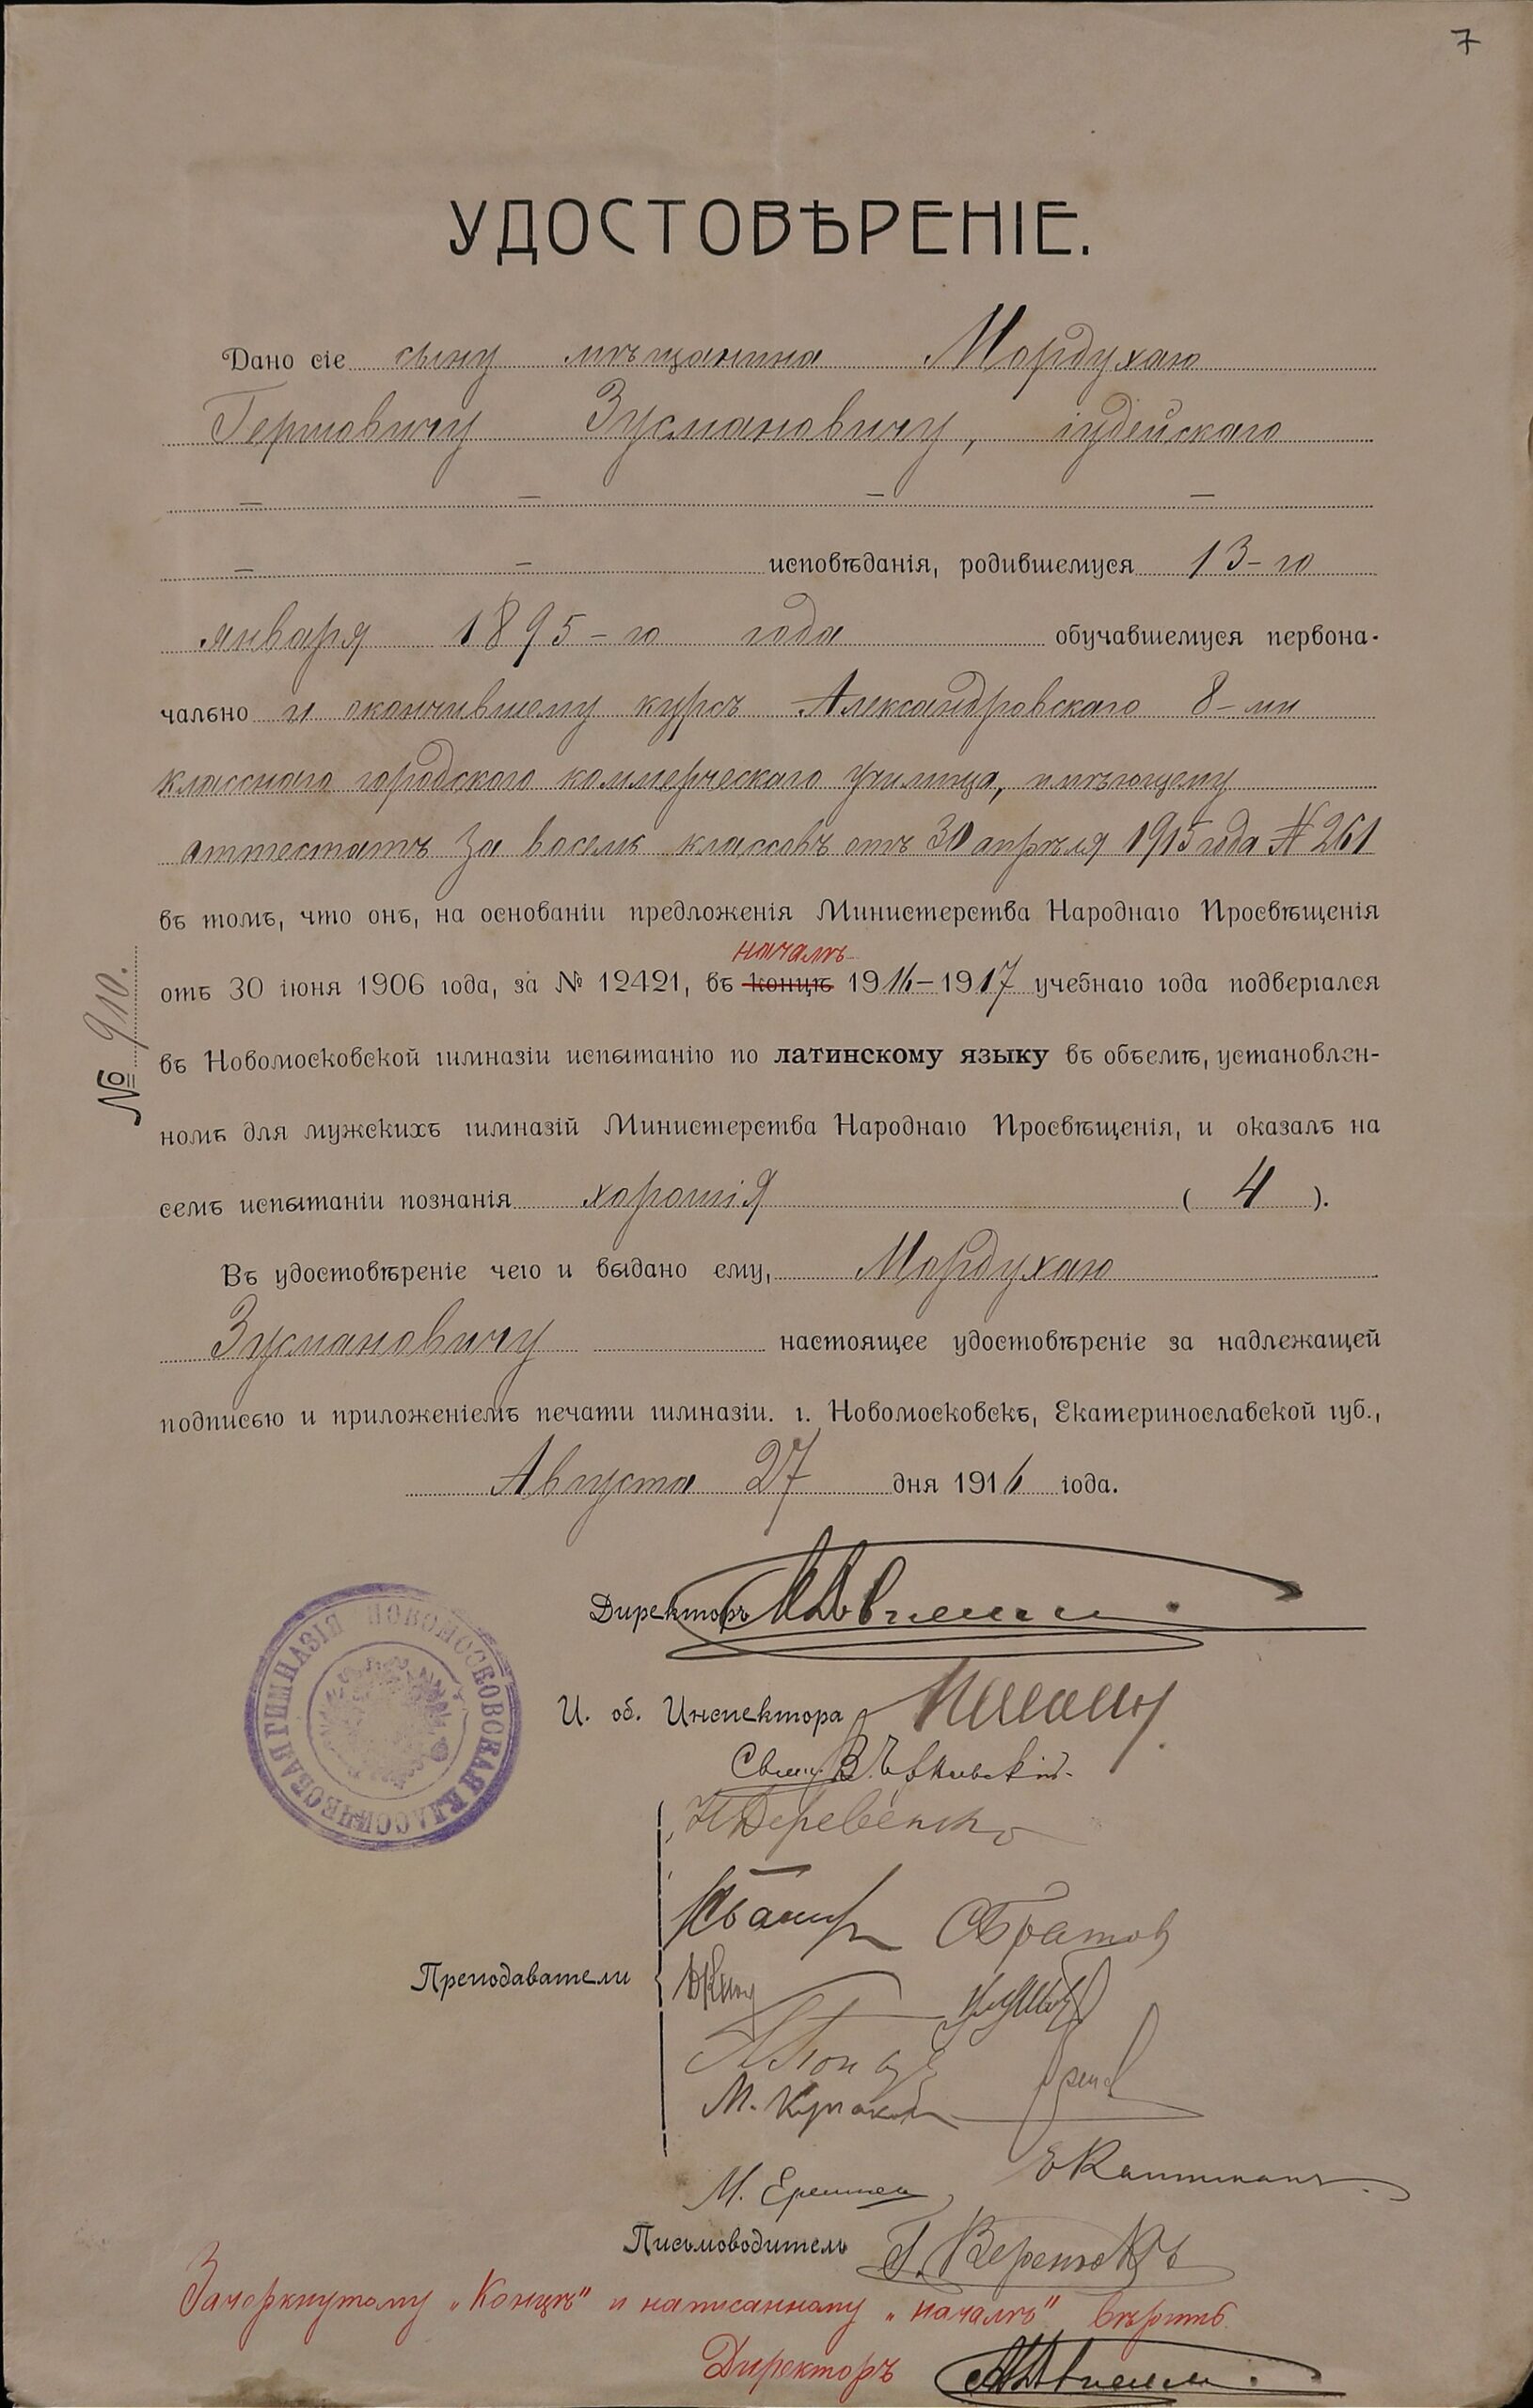 7
УДОСТОВѢРЕНІЕ.
Дано сіе сыну мѣщанина Мордухаю
Гершовичу Зусмановичу, іудейскаго
— — — —
— — исповѣданія, родившемуся 13-го
января 1895-го года обучавшемуся первона-
чально и окончившему курсъ Александровскаго 8-ми
класснаго городского коммерческаго училища, имѣющему
аттестатъ за восемь классовъ отъ 30 апрѣля 1915 года № 261
въ томъ, что онъ, на основаніи предложенія Министерства Народнаго Просвѣщенія
началѣ
отъ 30 іюня 1906 года, за № 12421, въ концѣ 1916–1917 учебнаго года подвергался
въ Новомосковской гимназіи испытанію по латинскому языку въ объемѣ, установлен-
номъ для мужскихъ гимназій Министерства Народнаго Просвѣщенія, и оказалъ на
семъ испытаніи познанія хорошія ( 4 ).
Въ удостовѣреніе чего и выдано ему, Мордухаю
Зусмановичу настоящее удостовѣреніе за надлежащей
подписью и приложеніемъ печати гимназіи. г. Новомосковскъ, Екатеринославской губ.,
Августа 27 дня 1916 года.
№ 910.
Директоръ
И. об. Инспектора
НОВОМОСКОВСКАЯ КЛАССИЧЕСКАЯ ГИМНАЗІЯ
Свящ. В.
Преподаватели
М.
М.
Письмоводитель
Зачеркнутому „Концѣ" и написанному „началѣ" вѣрить
Директоръ